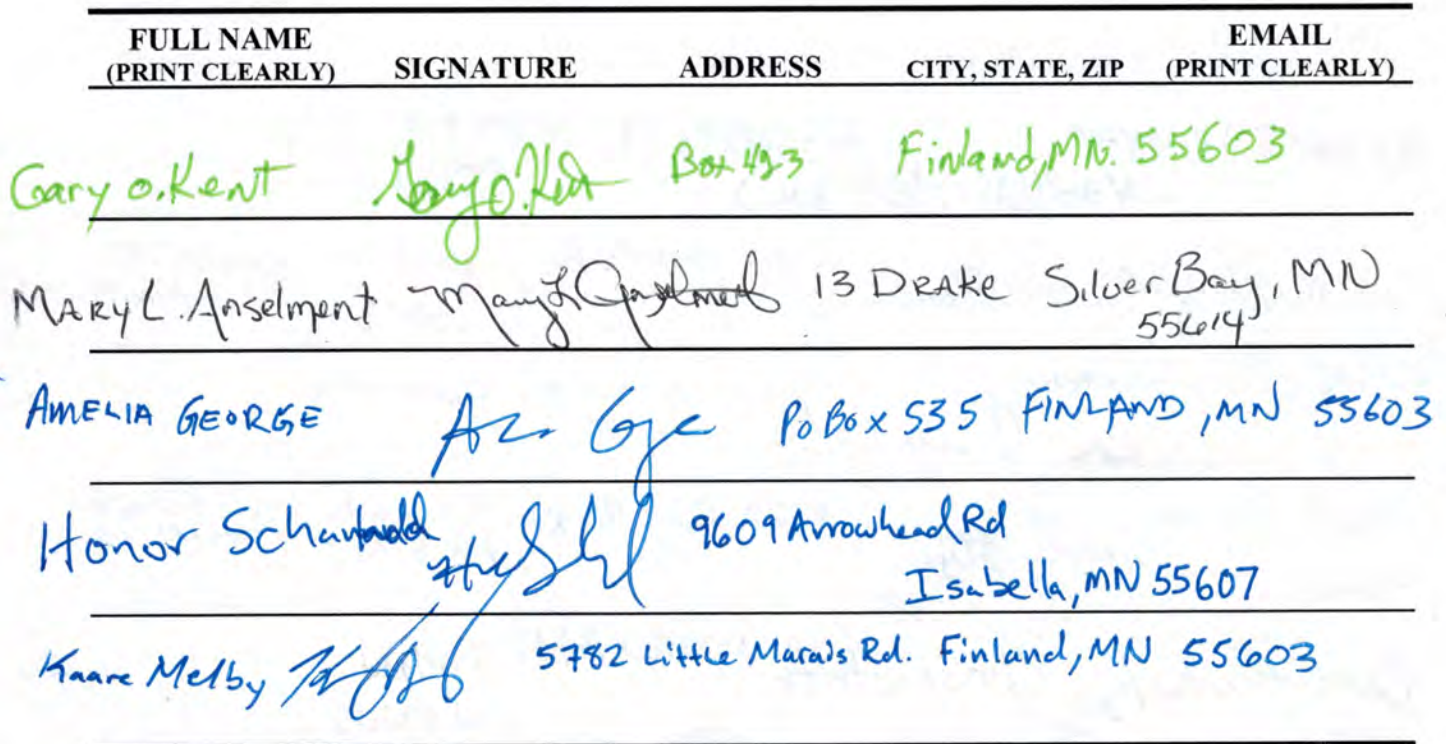 FULL NAME
(PRINT CLEARLY) SIGNATURE ADDRESS CITY, STATE, ZIP EMAIL
(PRINT CLEARLY)
Gary O. Kent Gary O. Kent Box 493 Finland, MN. 55603
MARY L. Anselment Mary L Anselment 13 DRAKE Silver Bay, MN
55614
AMELIA GEORGE PO BOX 535 FINLAND, MN 55603
Honor 9609 Arrowhead Rd
Isabella, MN 55607
Kaare Melby 5782 Little Marais Rd. Finland, MN 55603